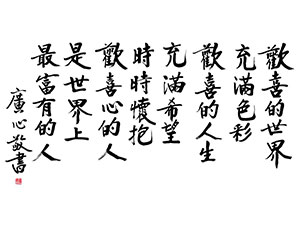 歡喜的世界
充滿色彩
歡喜的人生
充滿希望
時時懷抱
歡喜心的人
是世界上
最富有的人
廣心敬書